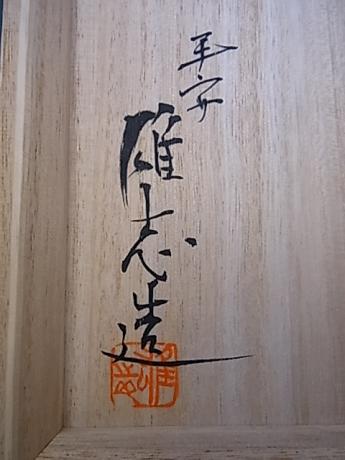 平安
雄志造